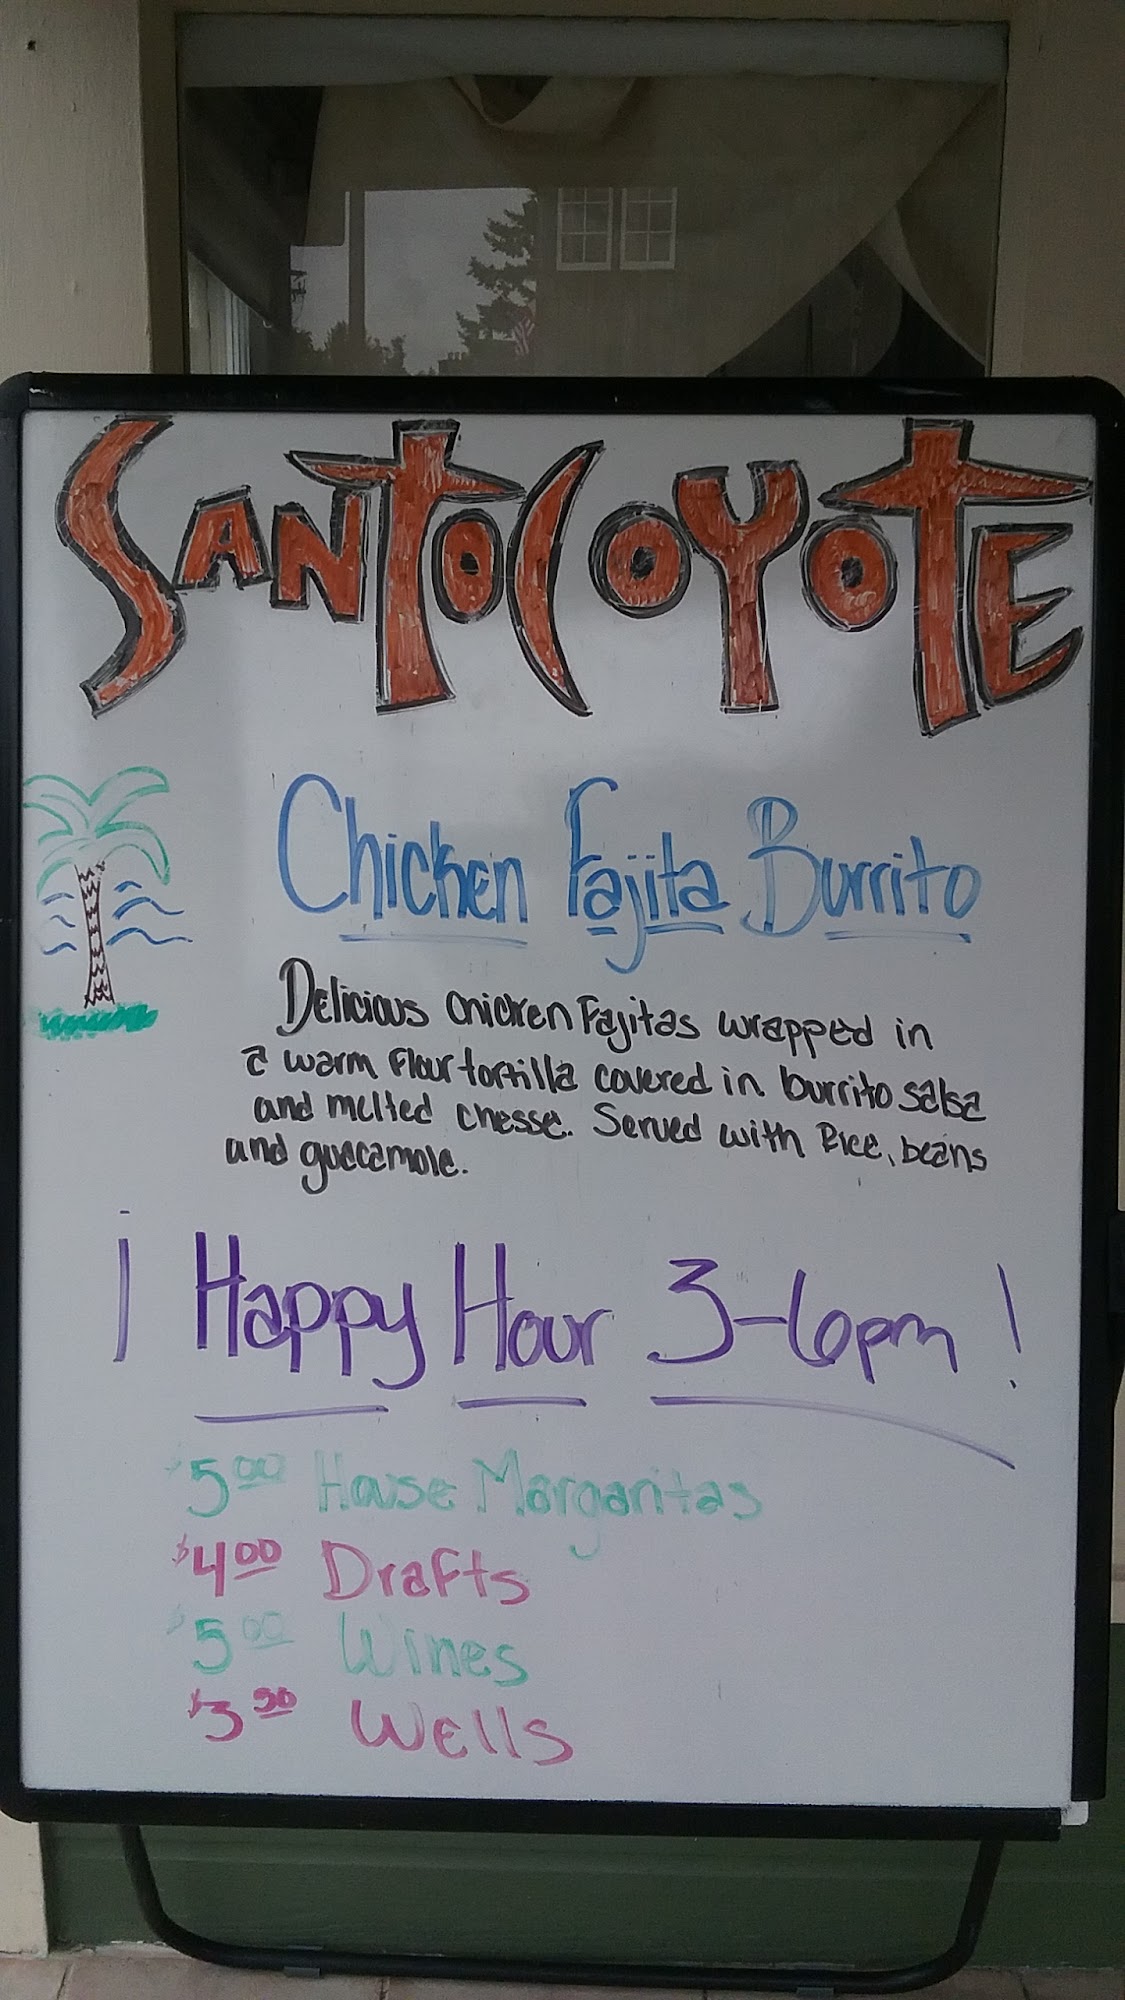 SANTO COYOTE
Chicken Fajita Burrito
Delicious chicken Fajitas wrapped in
a warm Flour tortilla covered in burrito salsa
and melted chesse. Served with Rice, beans
and guacamole.
¡ Happy Hour 3-6pm !
$5.00 House Margaritas
$4.00 Drafts
$5.00 Wines
$3.50 Wells